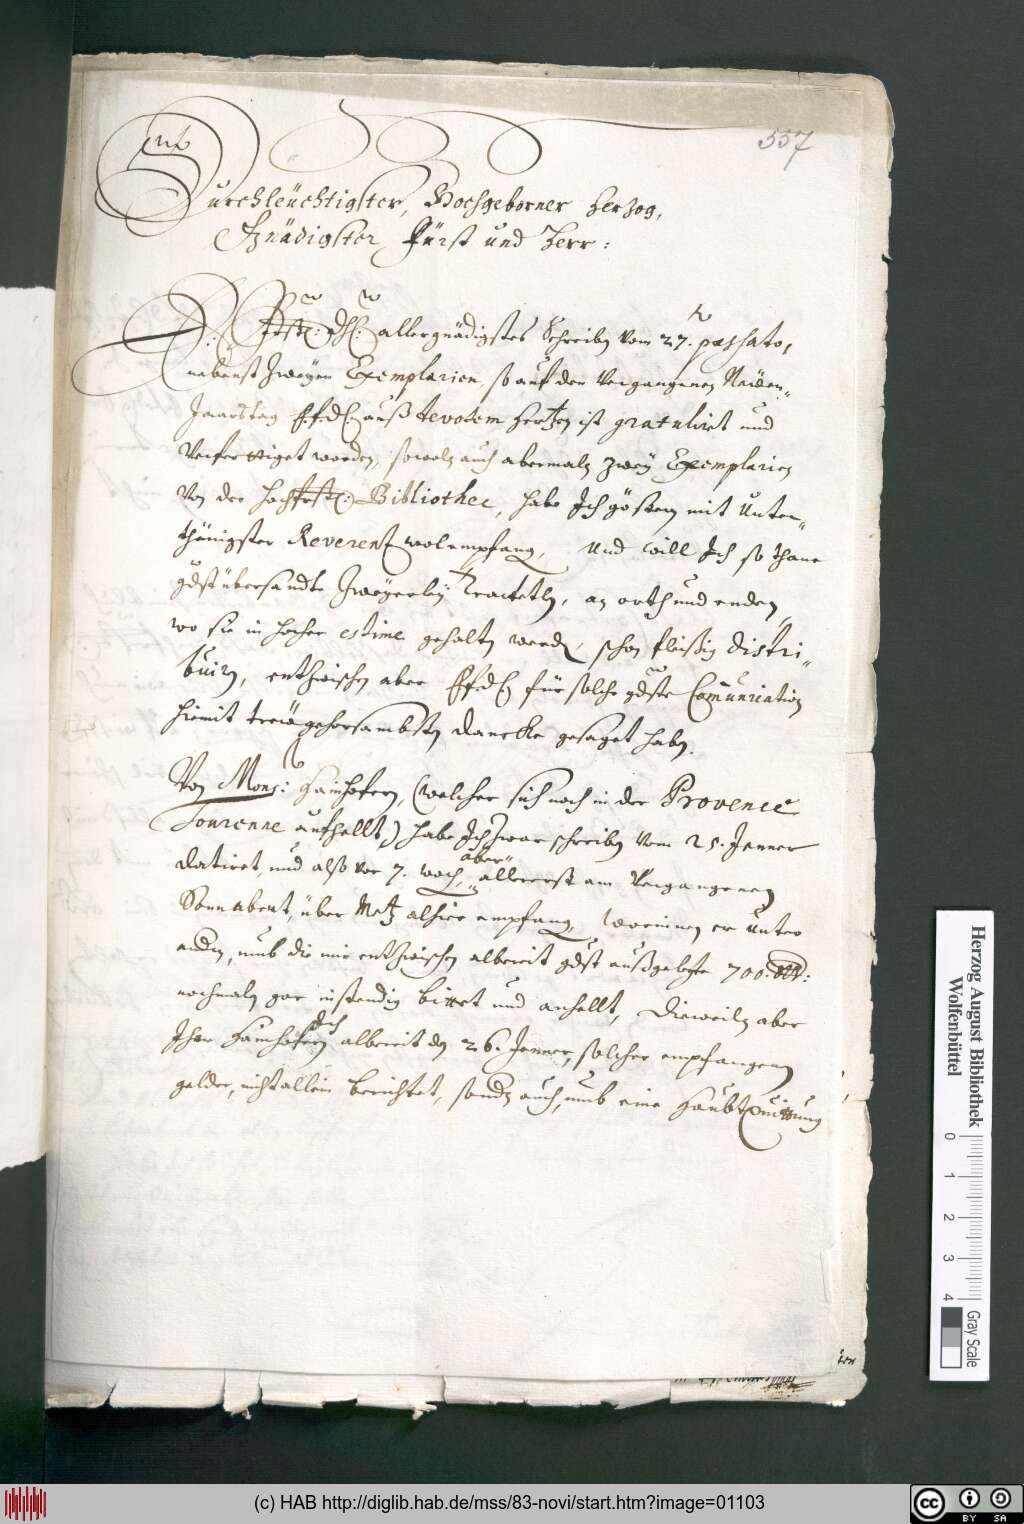 557
Durchleüchtigster, Hochgeborner Herzog,
Gnädigster Fürst und Herr:
allergnädigstes Schreiben vom 27. passato,
nebenst Zweyen Exemplarien, so auf den Vergangenen Neüen„
Jaarstag E.F.D. auß devotem Hertzen ist gratulirt und
Verferttiget worden, sowoln auch abermaln zwey Exemplarien
Von der Hochfrstl: Bibliothec, habe Ich göstern mit Unter„
thänigster Reverentz wol empfang, Und will Ich so thane
gdst übersandte Zweyerley Tractetln, an orth und enden„
wo sie in hocher estime gehalten werden, schon fleißig distri„
buirn, entzwischen aber E.F.D. für solche gdste Comunication
hiemit treügehorsambsten dancke gesaget haben.
Von Mons: Hainhofern, (welcher sich noch in der Provence
Tourenne aufhellt) habe Ich Zwar schreiben vom 25. Jenner
datiret, und also vor 7. woch, „aber„ allererst am Vergangenen
Sonnabent, über Metz alhier empfang, Worinnen er unter
andern, umb die mir entzwischen albereit gdst außgelegte 700.
nochmaln gar instendig bittet und anhellt, Dieweiln aber
Ihme Hainhofern doch albereit den 26. Jenner, solcher empfangenen
gelder, nicht allein berichtet, sondern auch, umb eine Haubtquittung
Herzog August Bibliothek
Wolfenbüttel
0 1 2 3 4
Gray Scale
(c) HAB http://diglib.hab.de/mss/83-novi/start.htm?image=01103
cc BY SA